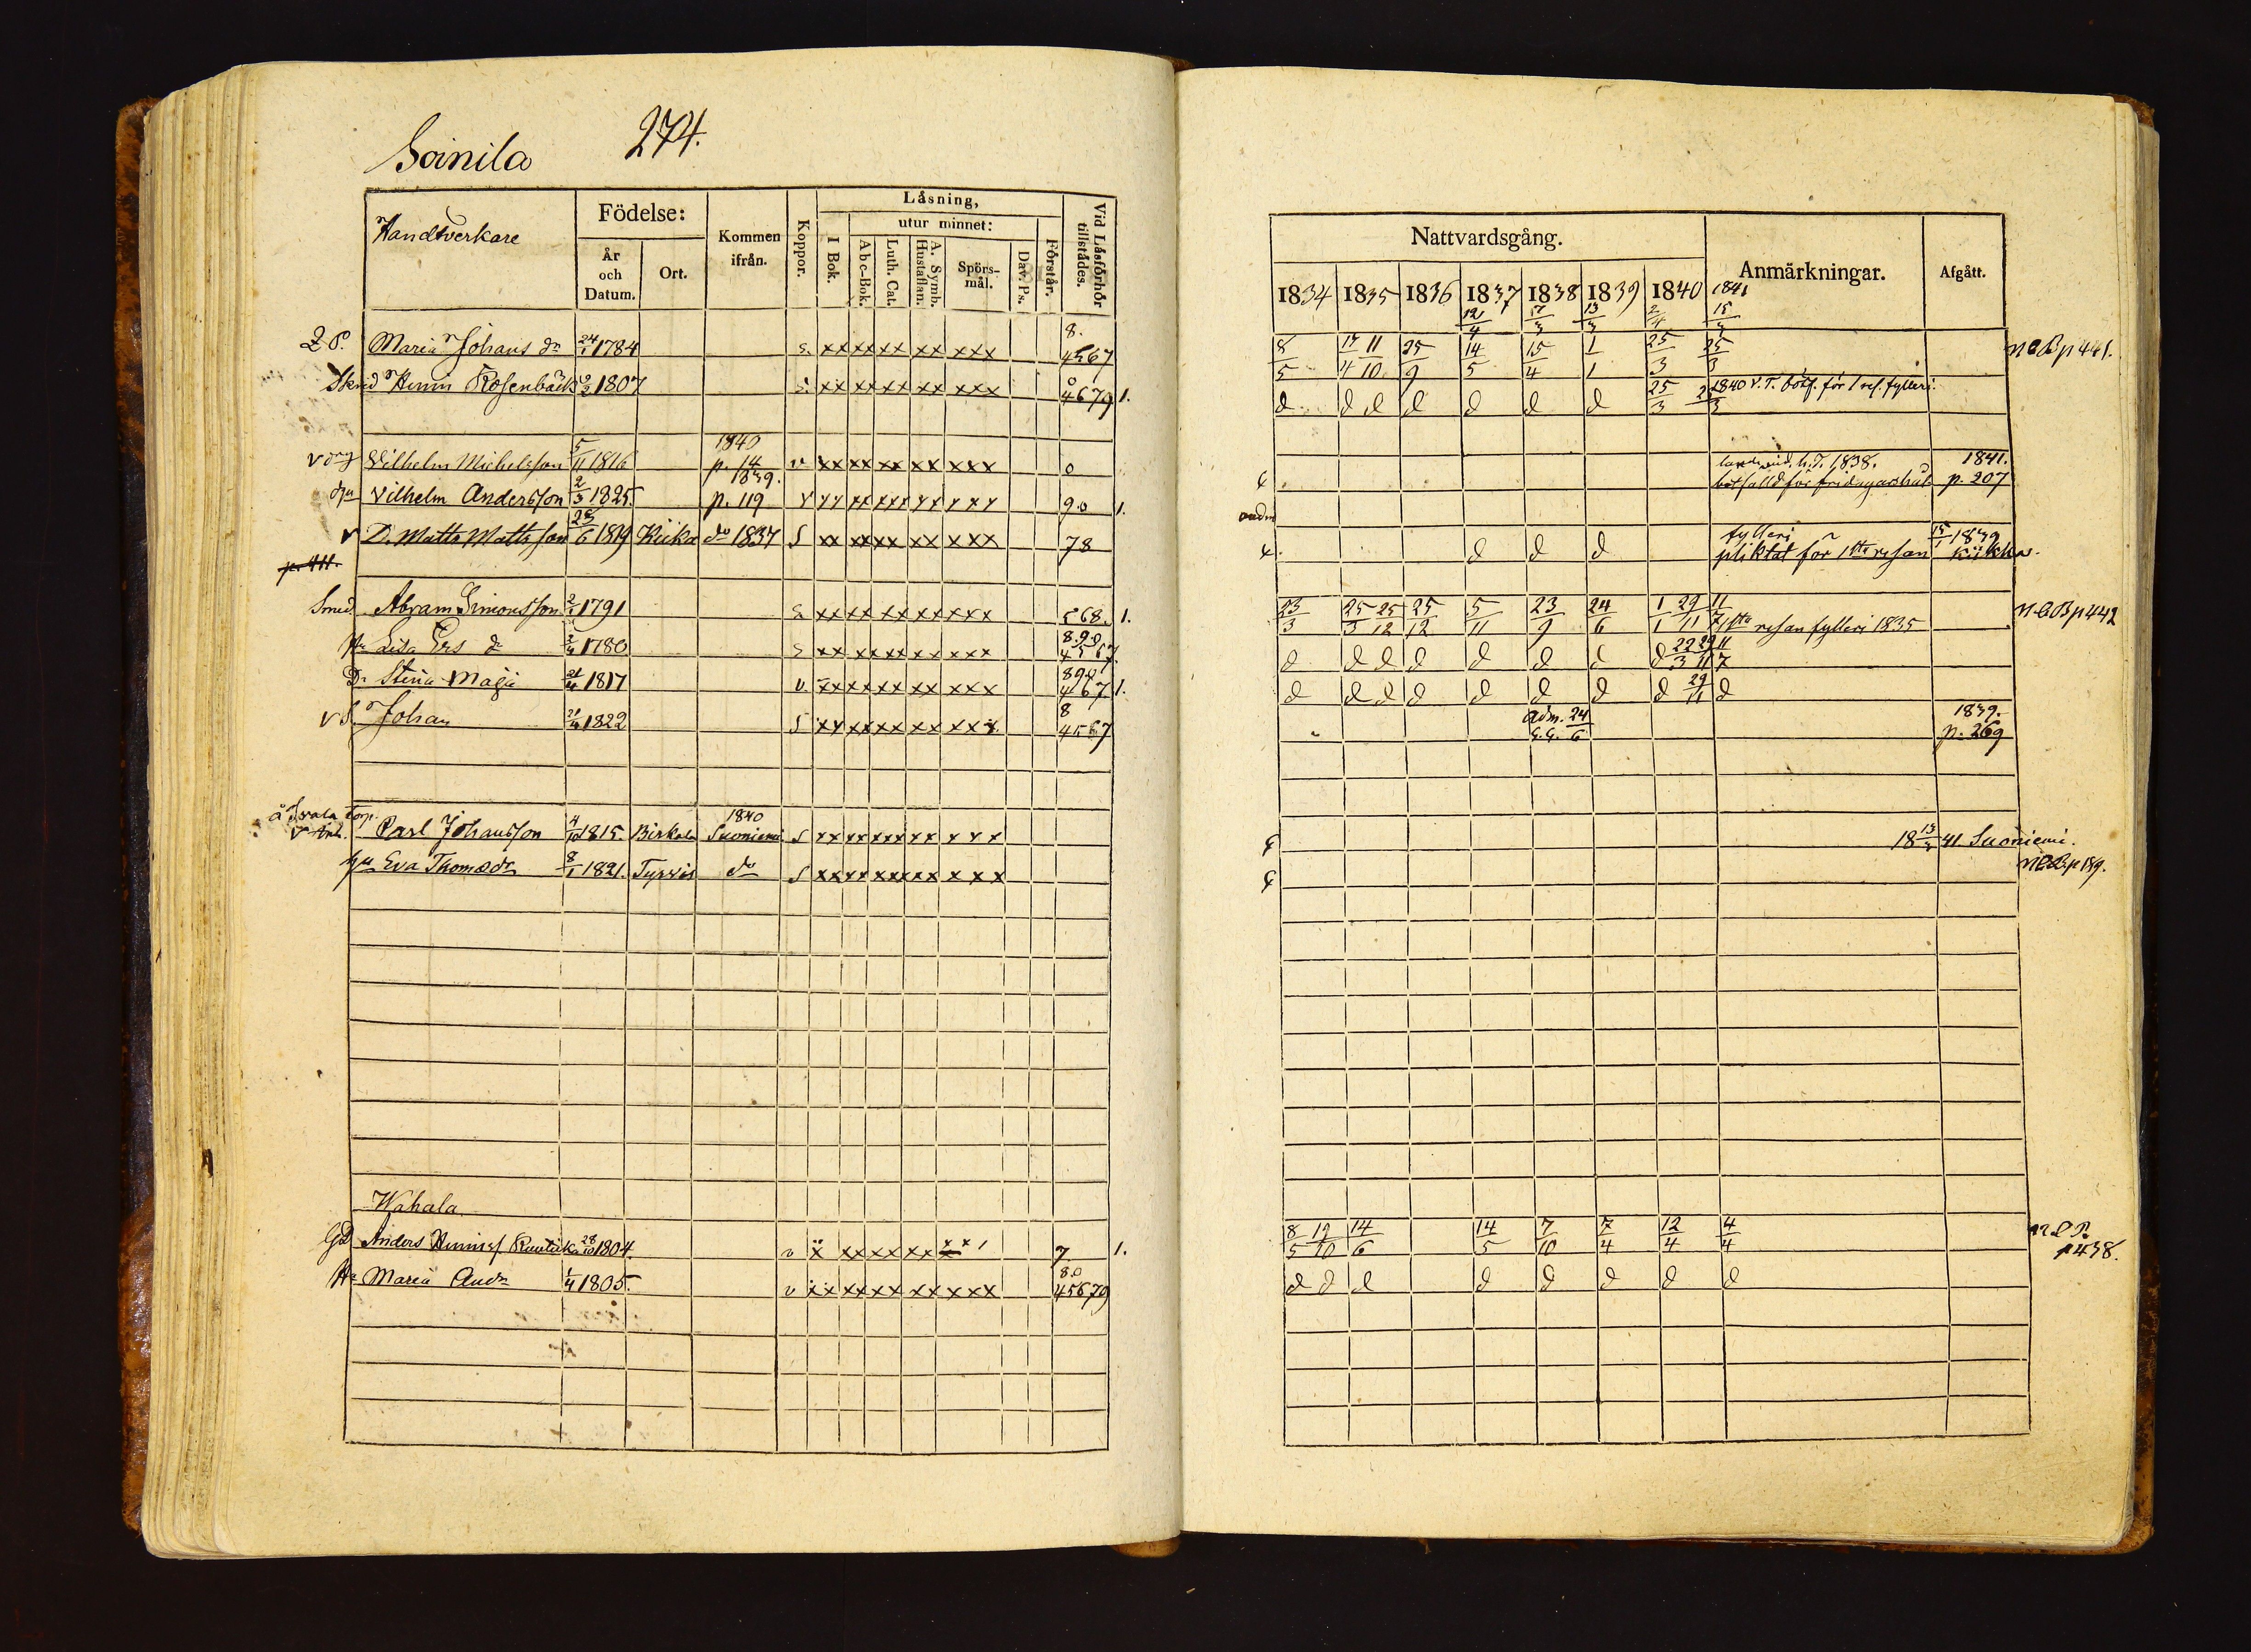 Soinila 274.
Handtverkare
Födelse:
År och Datum.
Ort.
Kommen ifrån.
Koppor.
Låsning,
utur minnet:
I Bok.
Abc-Bok.
Luth. Cat.
A. Symb. Hustaflan.
Spörs-mål.
Dav. Ps.
Förstår.
Vid Låsförhör tillstädes.
Maria Johans dr 24/1 1784 s. xx xx xx xx xxx 8. 4567
Henric Rosenbäck 1807 s. xx xx xx xx xxx 4679 1.
Wilhelm Michelsson 5/11 1816 1840 p. 14 v xx xx xx xx xxx 0
Vilhelm Andersson 2/3 1825. 1839. p. 119 v 9.0 1.
v D. Matts Mattsson 25/6 1819 Kiika do 1837 s xx xx xx xx xxx 78
Smed Abram Simonsson 2/1 1791 s xx xx xx xx xxx 568. 1.
Hu Lisa Ers dr 1780 s xx xx xx xx xxx 8.9.0 4567.
Dr Stina Maja 21/4 1817 v. xx xx xx xx xxx 890 467 1.
v S. Johan 1822 s xx xx xx xx xxx 8 4567
å Svala torp.
v Inh. Carl Johansson 4/10 1815. Birkala 1840 Suoniemi s xx xx xx xx xxx
hu Eva Thomædr 8/1 1821. Tyrvis do s xx xx xx xx xxx
Wahala
Anders Henrics. 28/10 1804 v 7 1.
Hu Maria And dr 1/4 1805. v xx xx xx xx xxx 8.0 45679
Nattvardsgång.
Anmärkningar.
Afgått.
1834 1835 1836 1837 1838 1839 1840 1841
12/4 13/3 2/4
8/5 11/10 25/9 14/5 15/4 1/1 25/3 25/3 NCB p 441.
d d d d d d d 25/3 1840 V.T. böt. för 1 res. fylleri.
h. T. 1838. 1841.
p. 207
d d d fylleri pliktat för 1sta resan 15/1 1839 Kiikka.
23/3 25/3 25/12 25/12 5/11 23/9 24/6 1/1 29/11 11/7 1sta resan fylleri 1835 NCB p 442
d d d d d d d d 22/3 29/11 11/7
d d d d d d d d 29/11 d
adm. 24/6 1839. p. 269
18 13/3 41 Suoniemi.
NCB p 189.
8/5 12/10 14/6 14/5 7/10 7/4 12/4 4/4 p 438.
d d d d d d d d